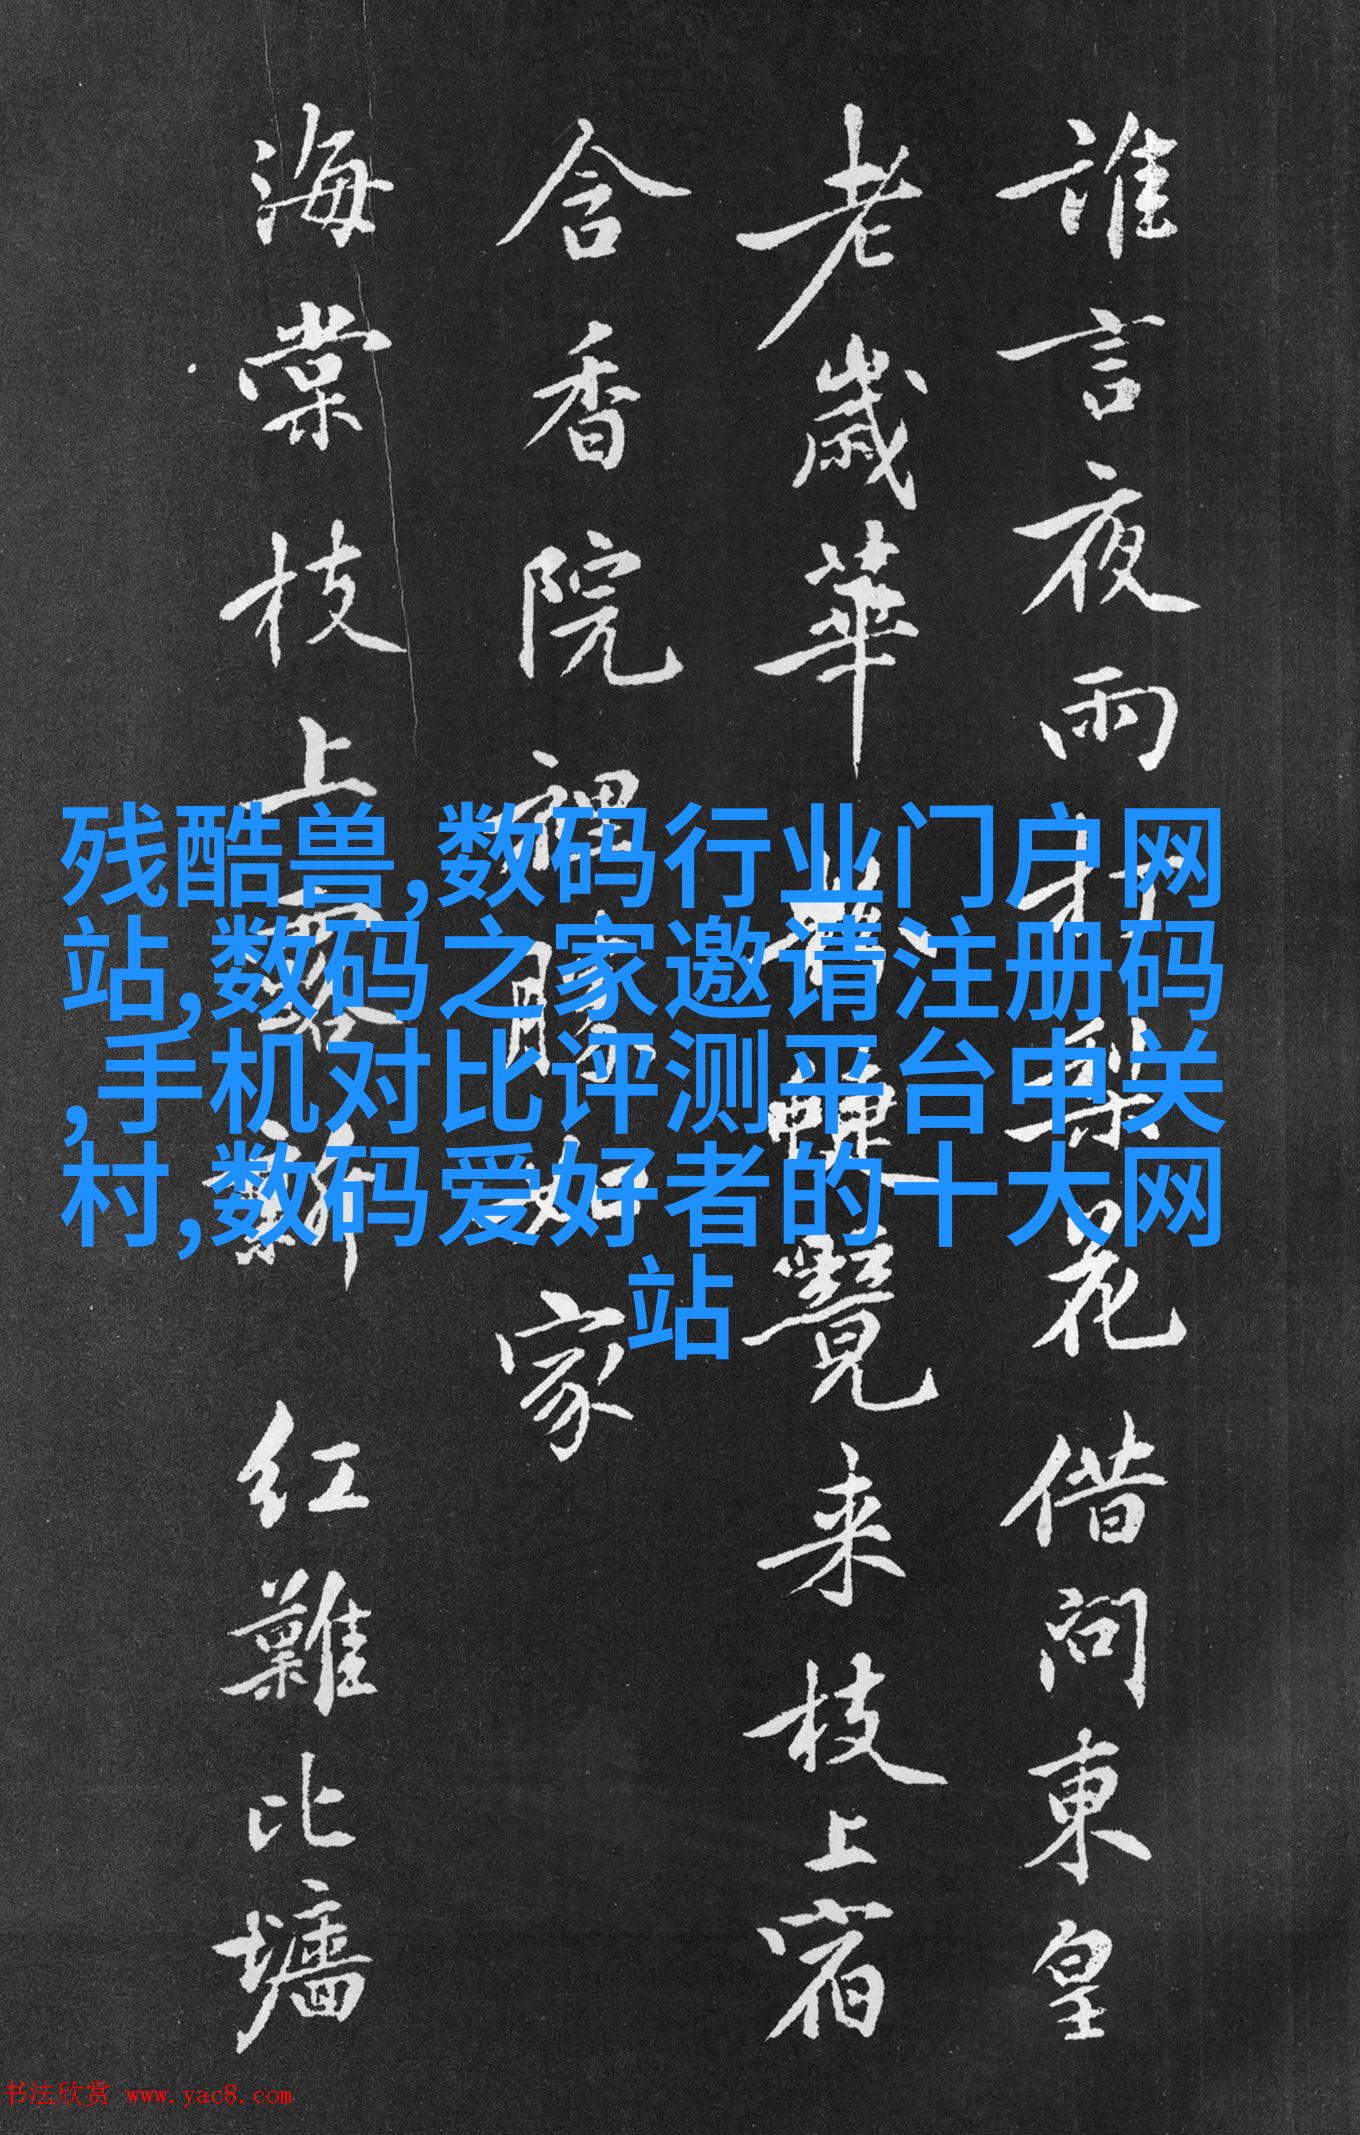 誰言夜雨打梨花借問東皇
老歲華來枝上宿
含香院裡勝如家
海棠枝上新红難比墻
残酷兽,数码行业门户网
站,数码之家邀请注册码
,手机对比评测平台中关
村,数码爱好者的十大网
站
书法欣赏 www.yac8.com